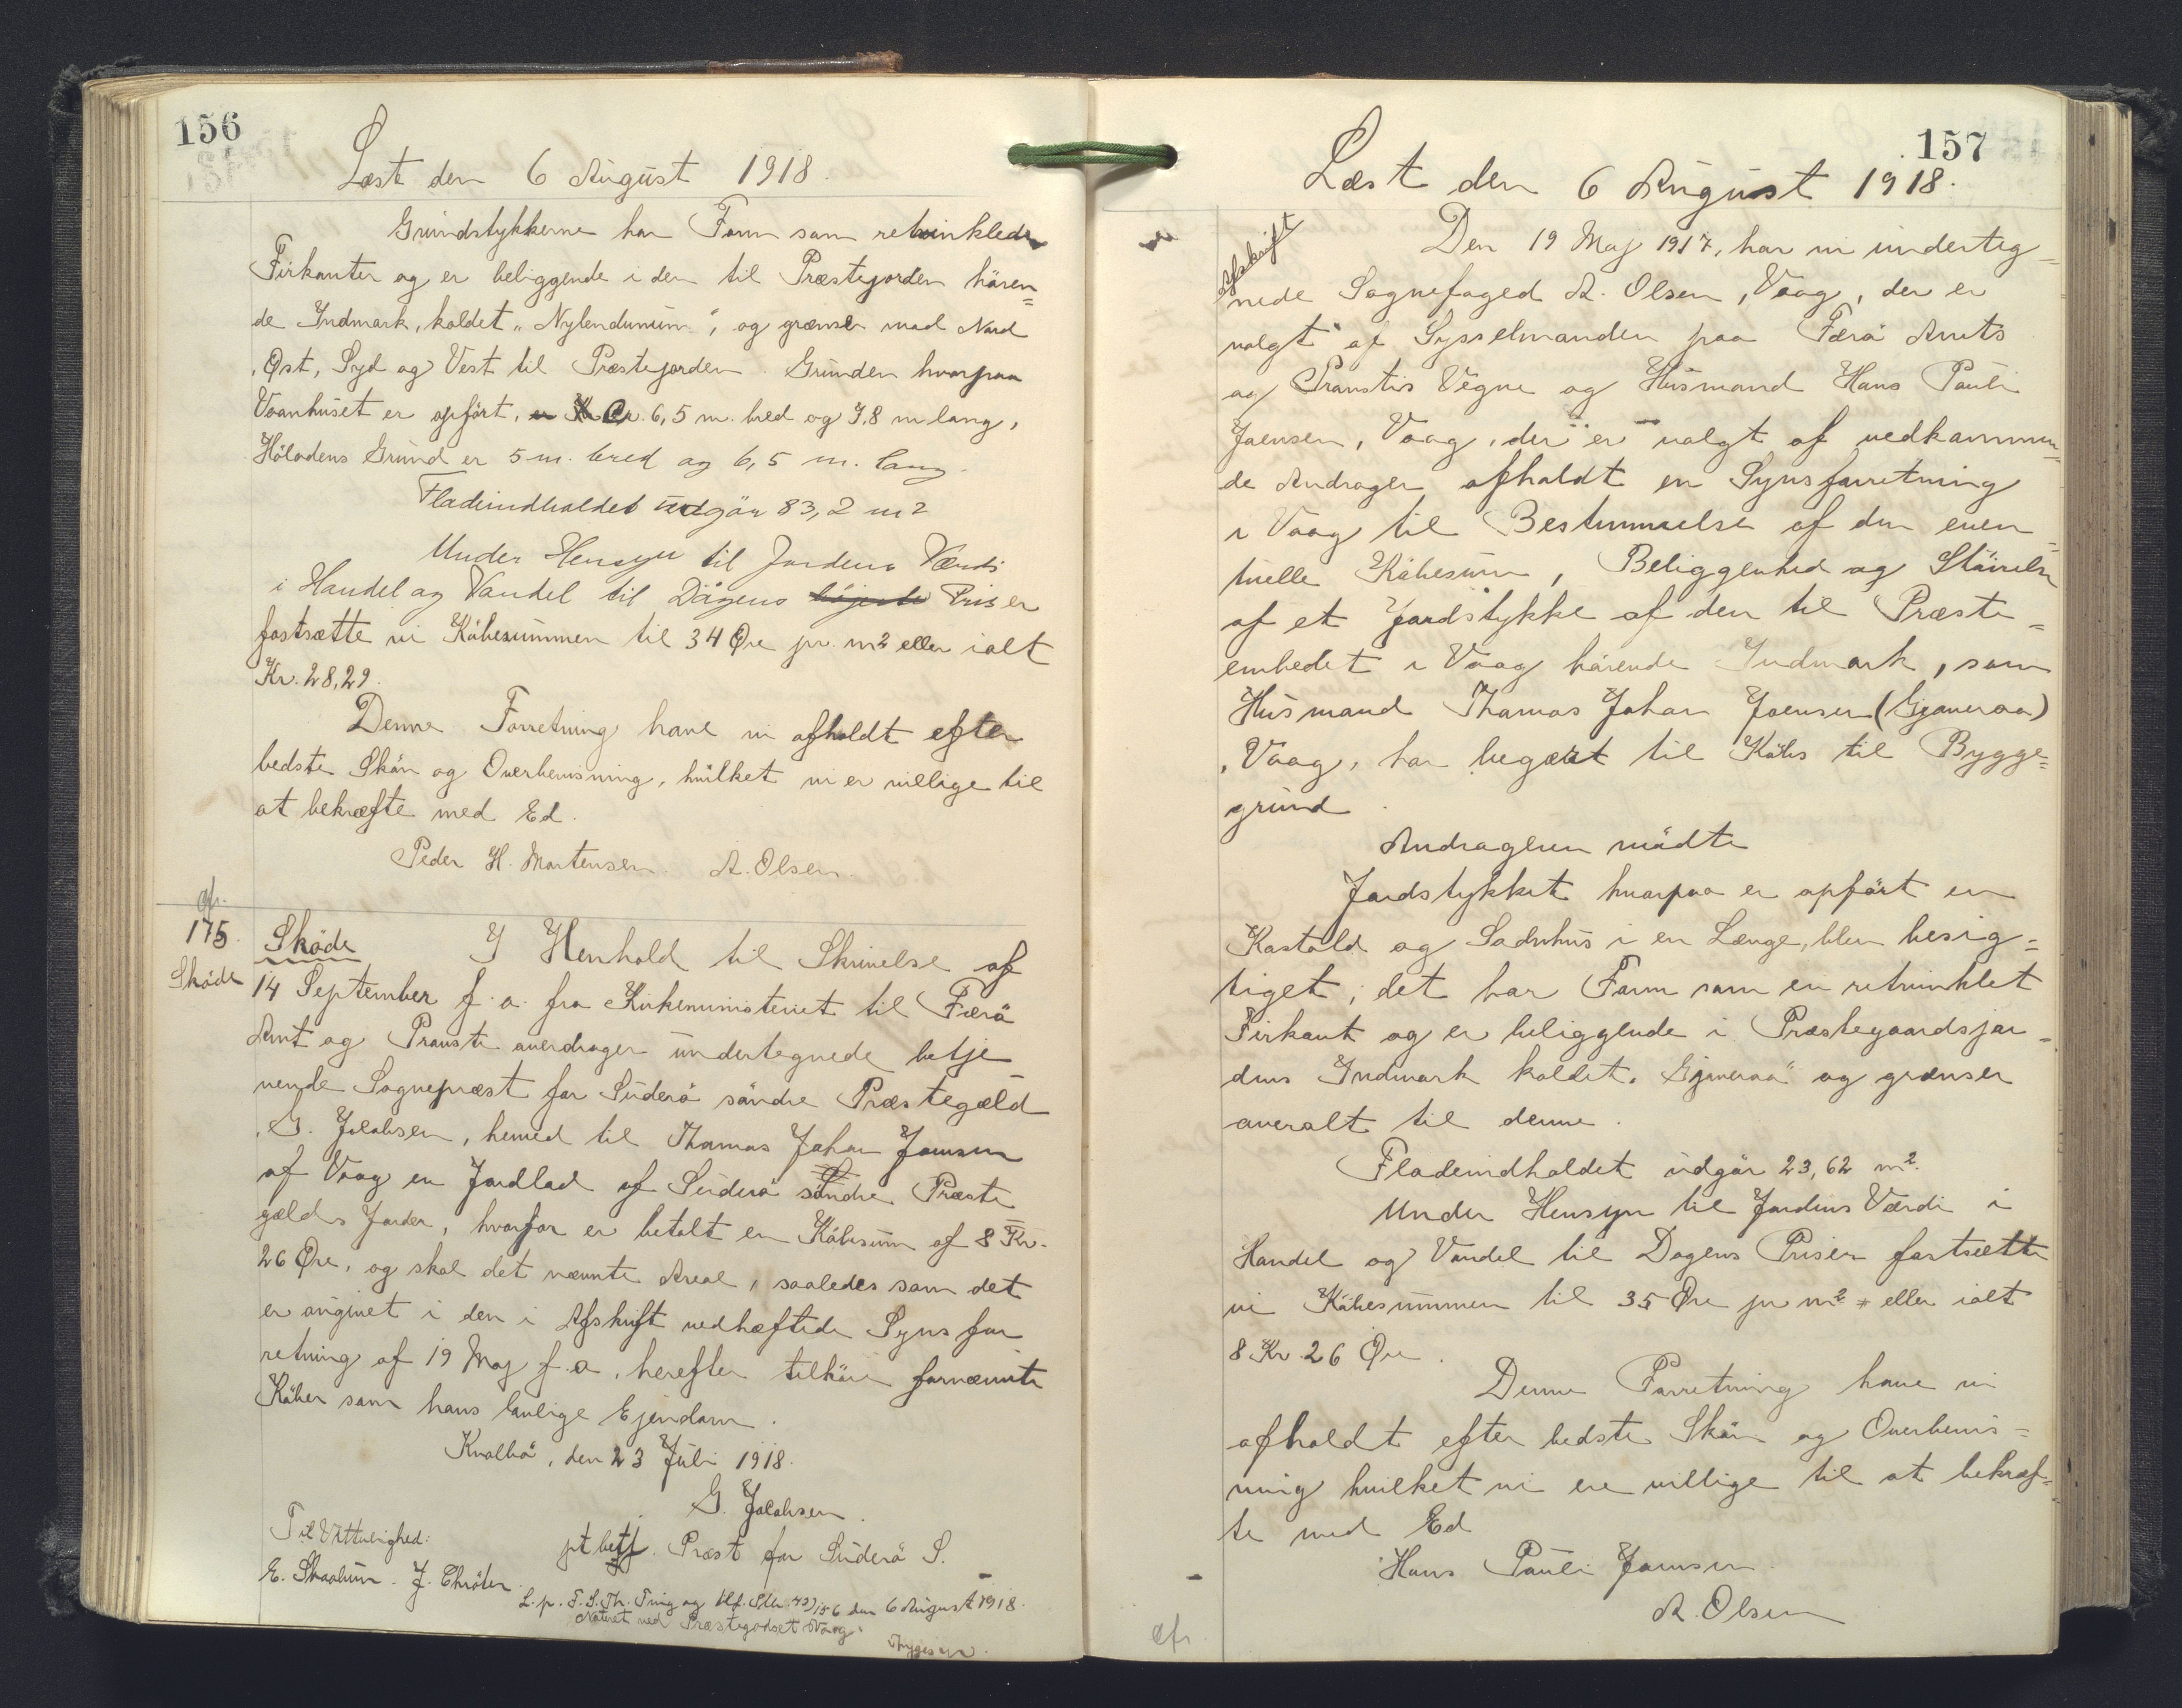 156
Læst den 6 August 1918.
Grundstykkerne har Form som retvinklede
Firkanter og er beliggende i den til Præstejorden hören=
de Indmark, kaldet „Nylendunum“, og grænser mod Nord
, Öst, Syd og Vest til Præstejorden. Grunden hvorpaa
Vaanhuset er opfört, er 6,5 m. bred og 7,8 m lang,
Höladens Grund er 5 m. bred og 6,5 m. lang.
Fladeindholdet udgör 83,2 m2
Under Hensyn til Jordens Værdi
i Handel og Vandel til Dagens höjeste Priser
fastsætte vi Köbesummen til 34 Öre pr. m2 eller ialt
Kr. 28,29.
Denne Forretning have vi afholdt efter
bedste Skön og Overbevisning, hvilket vi er villige til
at bekræfte med Ed.
Peder H. Mortensen. A. Olsen.
afr.
175.
Sköde
Sköde I Henhold til Skrivelse af
14 September f. a. fra Kirkeministeriet til Færö
Amt og Provsti overdrager undertegnede betje
nende Sognepræst for Suderö söndre Præstegæld
, G. Jacobsen, herved til Thomas Johan Joensen
af Vaag en Jordlod af Suderö söndre Præste
gælds Jorder, hvorfor er betalt en Köbesum af 8 Kr.
26 Öre, og skal det nævnte Areal, saaledes som det
er angivet i den i Afskrift vedhæftede Syns for
retning af 19 Maj f. a. herefter tilhöre fornævnte
Köber som hans lovlige Ejendom.
Kvalbö, den 23 Juli 1918.
G. Jacobsen.
pt betj. Præst for Suderö S.
Til Vitterlighed:
E. Skaalum. J. Thröter.
L. p. F. S. Th. Ting og 6 August 1918.
Noteret ved Præstegodset Vaag.
157
Læst den 6 August 1918.
Afskrift
Den 19 Maj 1917, har vi underteg=
nede Sognefoged A. Olsen, Vaag, der er
valgt af Sysselmanden paa Færö Amts
og Provstis Vegne og Husmand Hans Pauli
Joensen, Vaag, der er valgt af vedkommen=
de Andrager afholdt en Synsforretning
i Vaag til Bestemmelse af den even=
tuelle Köbesum, Beliggenhed og Störrelse
af et Jordstykke af den til Præste=
embedet i Vaag hörende Indmark, som
Husmand Thomas Johan Joensen (Gjoveraa)
, Vaag, har begært til Köbs til Bygge=
grund.
Andrageren mödte
Jordstykket hvorpaa er opfört en
Kostald og Sodnhus i en Længe, blev besig=
tiget; det har Form som en retvinklet
Firkant og er beliggende i Præstegaardsjor=
dens Indmark kaldet „Gjoveraa“ og grænser
overalt til denne.
Fladeindholdet udgör 23,62 m2.
Under Hensyn til Jordens Værdi i
Handel og Vandel til Dagens Priser fastsætte
vi Köbesummen til 35 Öre pr m2 eller ialt
8 Kr. 26 Öre.
Denne Forretning have vi
afholdt efter bedste Skön og Overbevis=
ning hvilket vi ere villige til at bekræf=
te med Ed
Hans Pauli Joensen.
A. Olsen
afr.